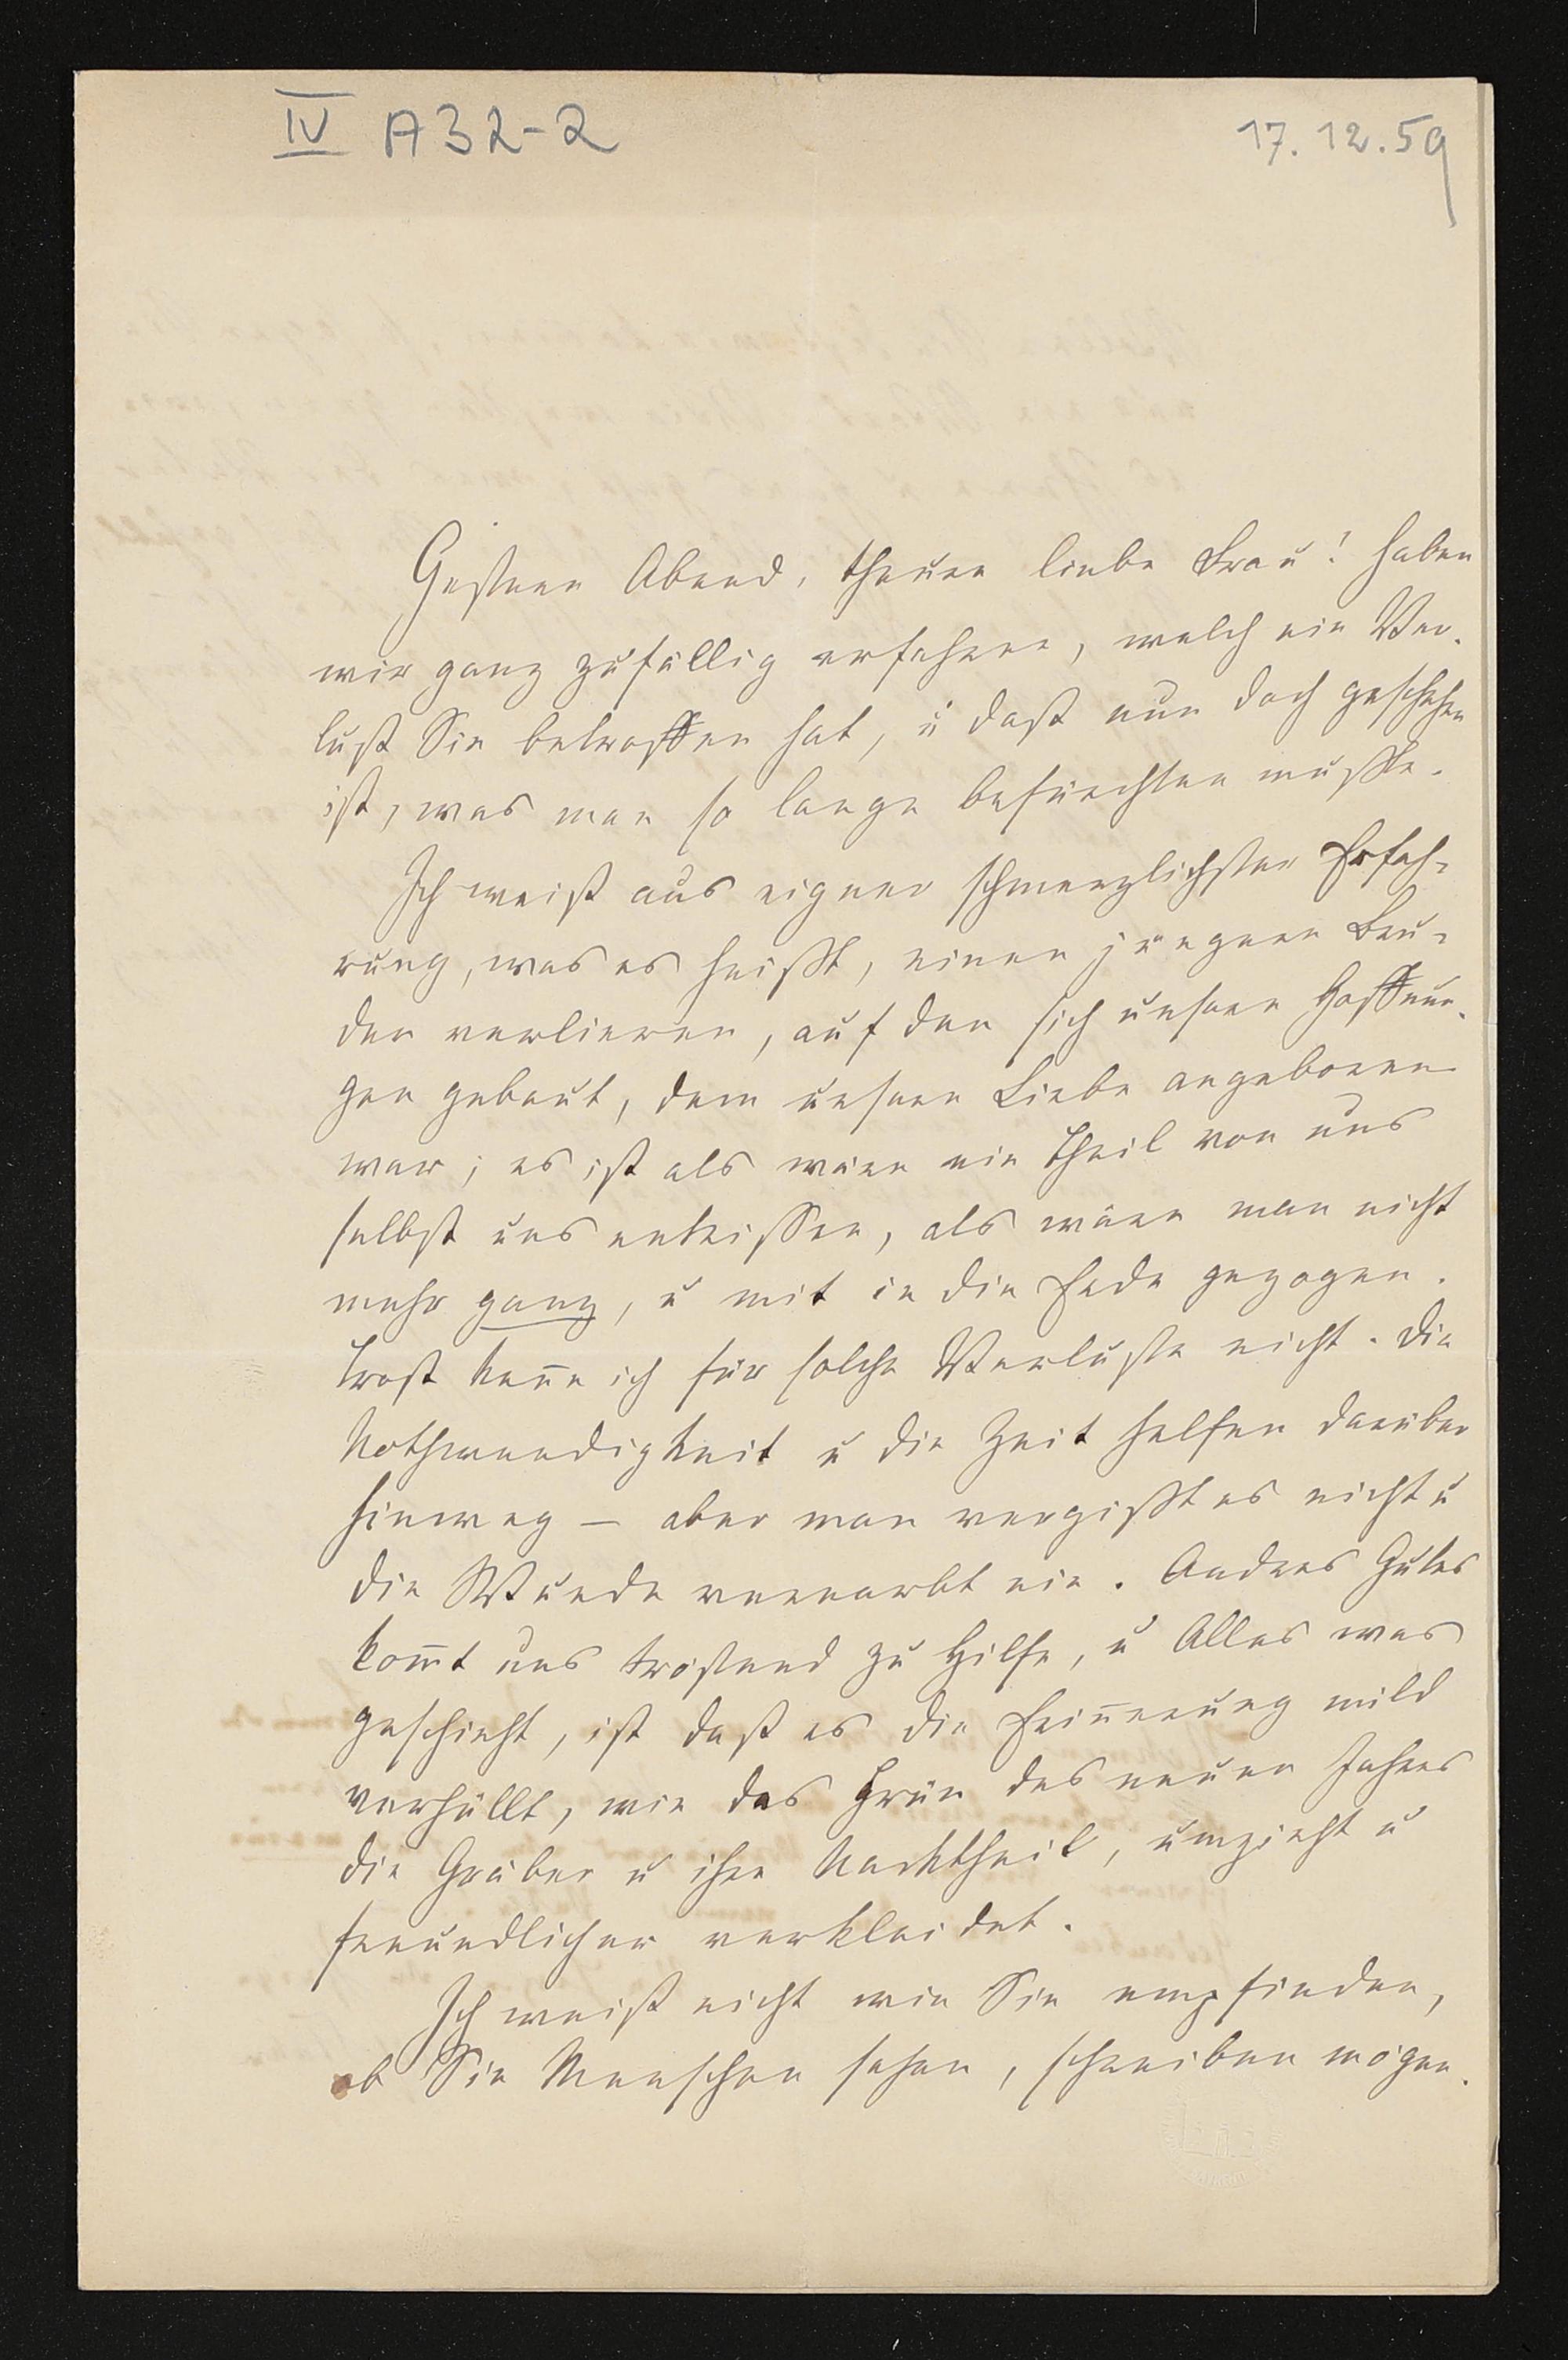 IV A32-2
17.12.59
Gestern Abend, theure liebe Frau! haben
wir ganz zufällig erfahren, welch ein Ver-
lust Sie betroffen hat, u daß nun doch geschehen
ist, was man so lange befürchten mußte.
Ich weiß aus eigner schmerzlichster Erfah-
rung, was es heißt, einen jüngern Bru-
der verlieren, auf den sich unsere Hoffnun-
gen gebaut, dem unsere Liebe angeboren
war; es ist als wäre ein Theil von uns
selbst uns entrissen, als wäre man nicht
mehr ganz, u mit in die Erde gezogen.
Trost kenne ich für solche Verluste nicht. Die
Nothwendigkeit u die Zeit helfen darüber
hinweg — aber man vergißt es nicht u
die Wunde vernarbt nie. Andres Gutes
kom̅t uns tröstend zu Hilfe, u Alles was
geschieht, ist daß es die Erin̅erung mild
verhüllt, wie das Grün des neuen Jahres
die Gräber u ihre Nacktheit, umzieht u
freundlicher verkleidet.
Ich weiß nicht wie Sie empfinden,
ob Sie Menschen sehen, schreiben mögen.